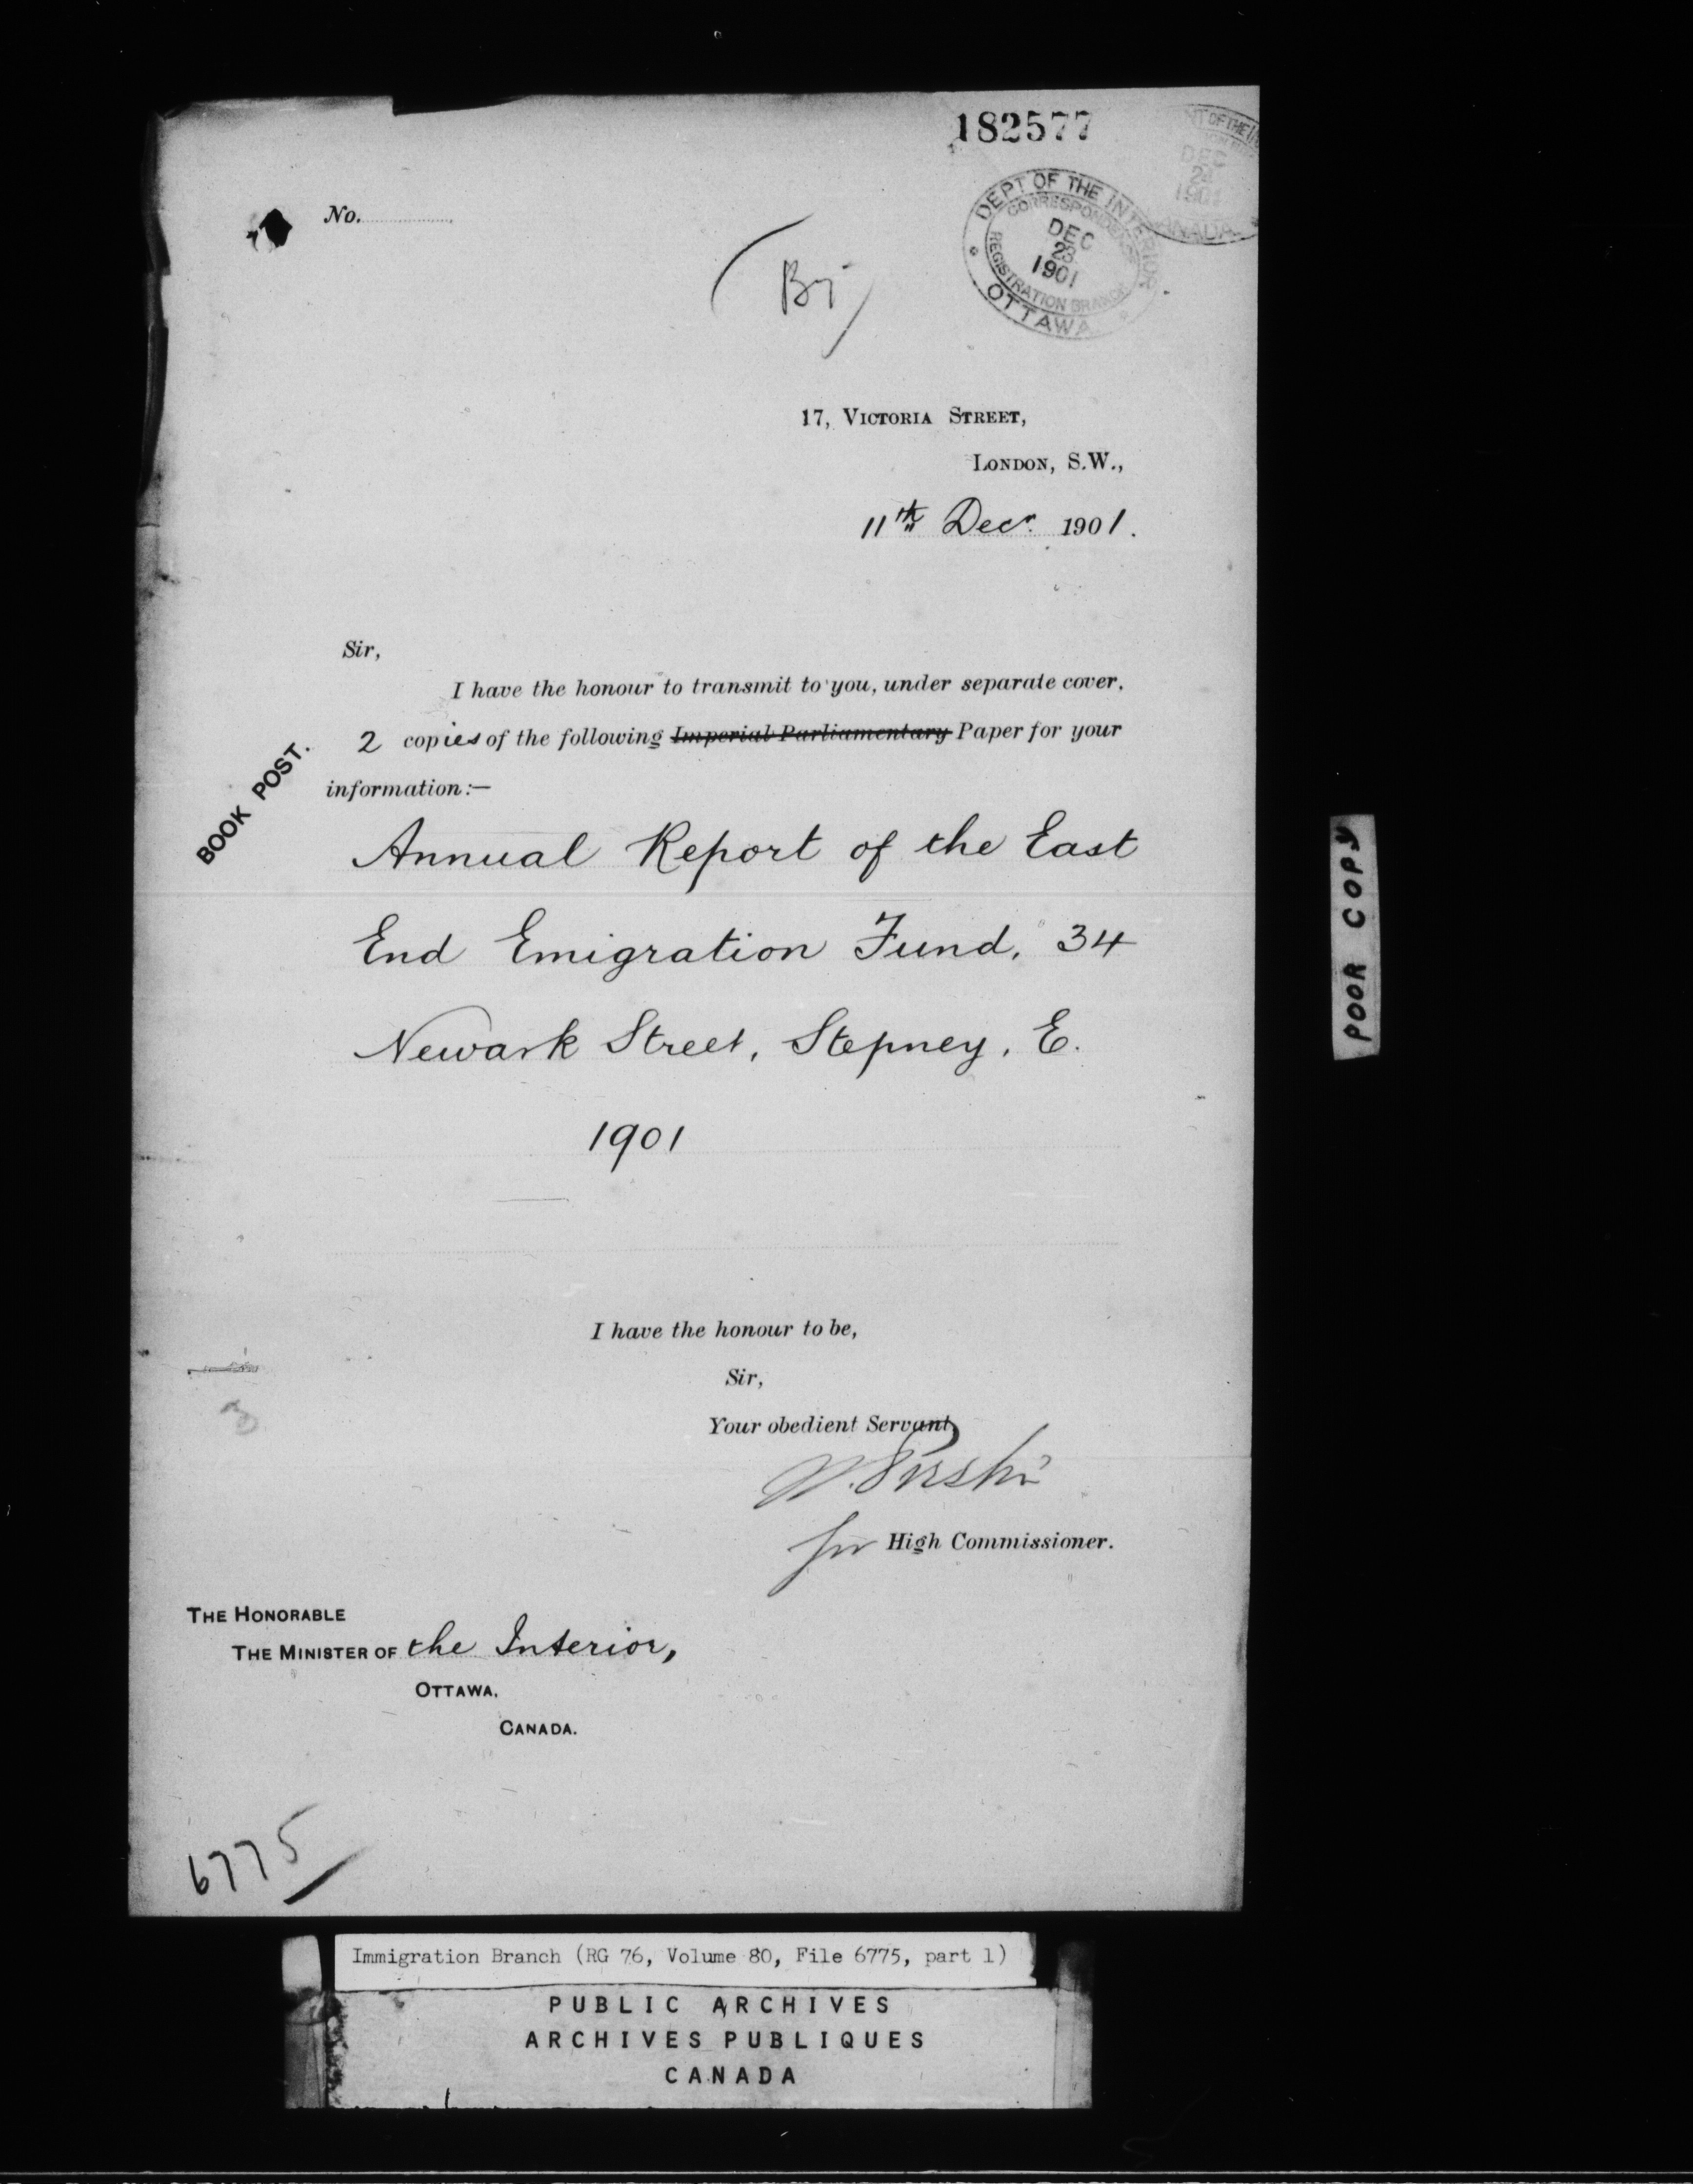 182577
DEPT OF THE INTERIOR
CORRESPONDENCE
DEC
23
1901
REGISTRATION BRANCH
OTTAWA
NT OF THE
DEC
24
1901
CANADA
No.
17, VICTORIA STREET,
LONDON, S.W.,
11th Decr. 1901.
Sir,
I have the honour to transmit to you, under separate cover,
2 copies of the following Imperial Parliamentary Paper for your
information:—
BOOK POST.
Annual Report of the East
End Emigration Fund, 34
Newark Street, Stepney, E.
1901
I have the honour to be,
Sir,
Your obedient Servant
for High Commissioner.
THE HONORABLE
THE MINISTER OF the Interior,
OTTAWA,
CANADA.
6775
POOR COPY
Immigration Branch (RG 76, Volume 80, File 6775, part 1)
PUBLIC ARCHIVES
ARCHIVES PUBLIQUES
CANADA